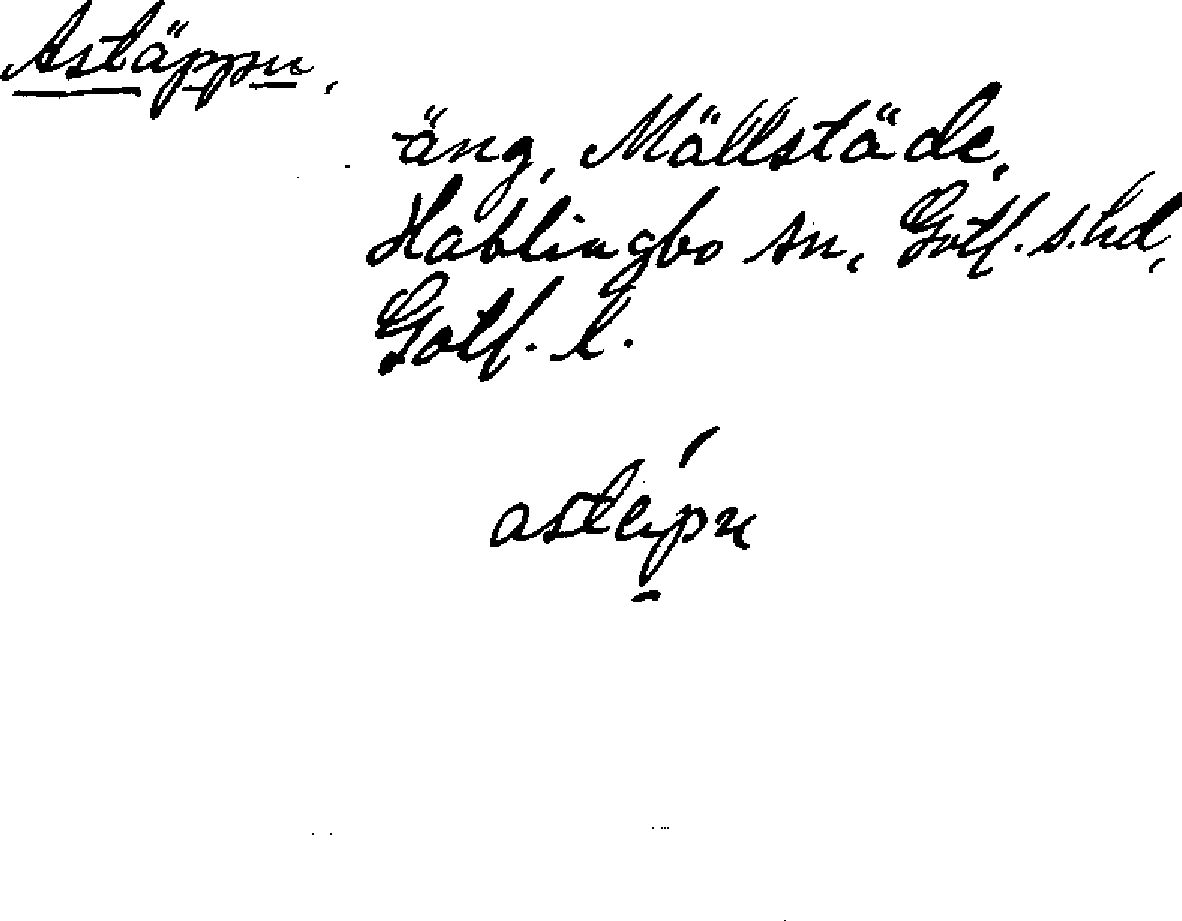 Astäppu,
äng, Mällstäde,
Hablingbo sn, Gotl. s. hd,
Gotl. l.
astepu